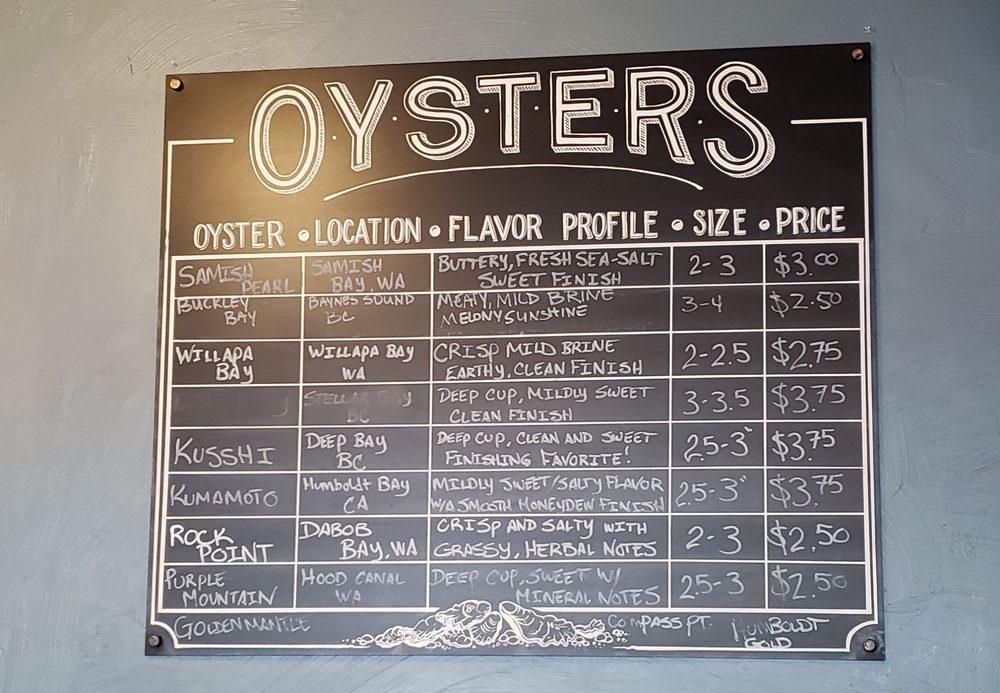 O·Y·S·T·E·R·S
OYSTER • LOCATION • FLAVOR PROFILE • SIZE • PRICE
SAMISH PEARL
SAMISH BAY, WA
BUTTERY, FRESH SEA-SALT
SWEET FINISH
2-3
$3.00
BUCKLEY BAY
BAYNES SOUND BC
MEATY, MILD BRINE
MELONY SUNSHINE
3-4
$2.50
WILLAPA BAY
WILLAPA BAY WA
CRISP MILD BRINE
EARTHY, CLEAN FINISH
2-2.5
$2.75
STELLAR BAY
BC
DEEP CUP, MILDLY SWEET
CLEAN FINISH
3-3.5
$3.75
KUSSHI
DEEP BAY
BC
DEEP CUP, CLEAN AND SWEET
FINISHING FAVORITE!
2.5-3"
$3.75
KUMAMOTO
HUMBOLDT BAY
CA
MILDLY SWEET/SALTY FLAVOR
W/A SMOOTH HONEYDEW FINISH
2.5-3"
$3.75
ROCK POINT
DABOB BAY, WA
CRISP AND SALTY WITH
GRASSY, HERBAL NOTES
2-3
$2.50
PURPLE MOUNTAIN
HOOD CANAL
WA
DEEP CUP, SWEET W/
MINERAL NOTES
2.5-3
$2.50
GOLDENMANTLE
COMPASS PT.
HUMBOLDT GOLD